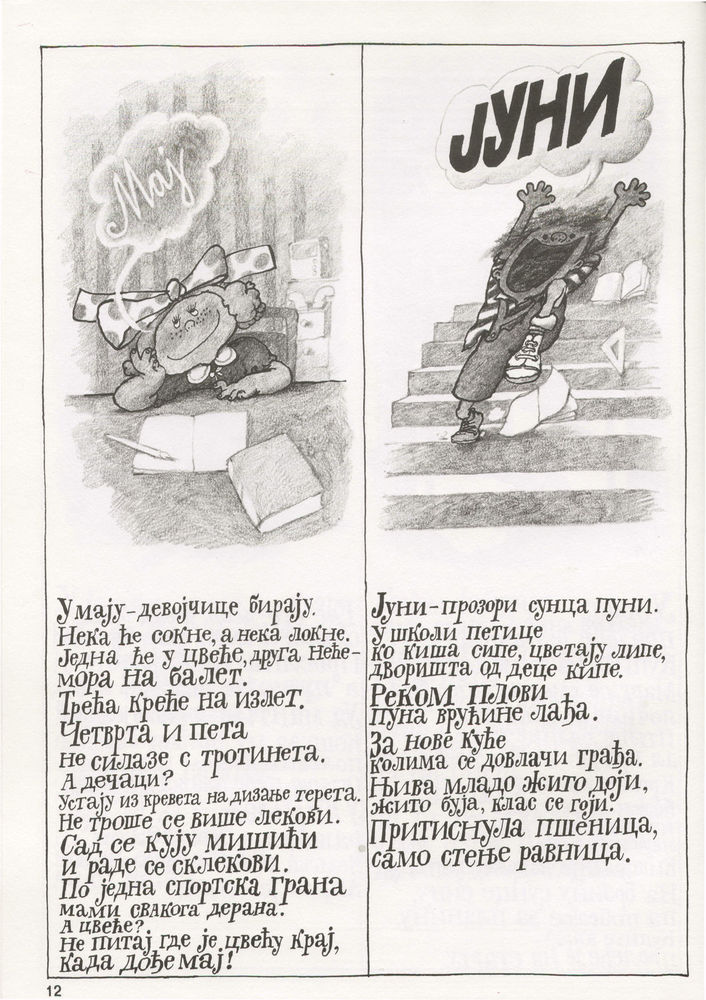 Мај
У мају-девојчице бирају.
Нека ће сокне, а нека локне.
Једна ће у цвеће, друга неће-
мора на балет.
Трећа креће на излет.
Четврта и пета
не силазе с тротинета.
А дечаци?
Устају из кревета на дизање терета.
Не троше се више лекови.
Сад се кују мишићи
и раде се склекови.
По једна спортска грана
мами свакога дерана.
А цвеће?
Не питај где је цвећу крај,
када дође мај!
ЈУНИ
Јуни-прозори сунца пуни.
У школи петице
ко киша сипе, цветају липе,
дворишта од деце кипе.
Реком плови
пуна врућине лађа.
За нове куће
колима се довлачи грађа.
Њива младо жито доји,
жито буја, клас се гоји.
Притиснула пшеница,
само стење равница.
12